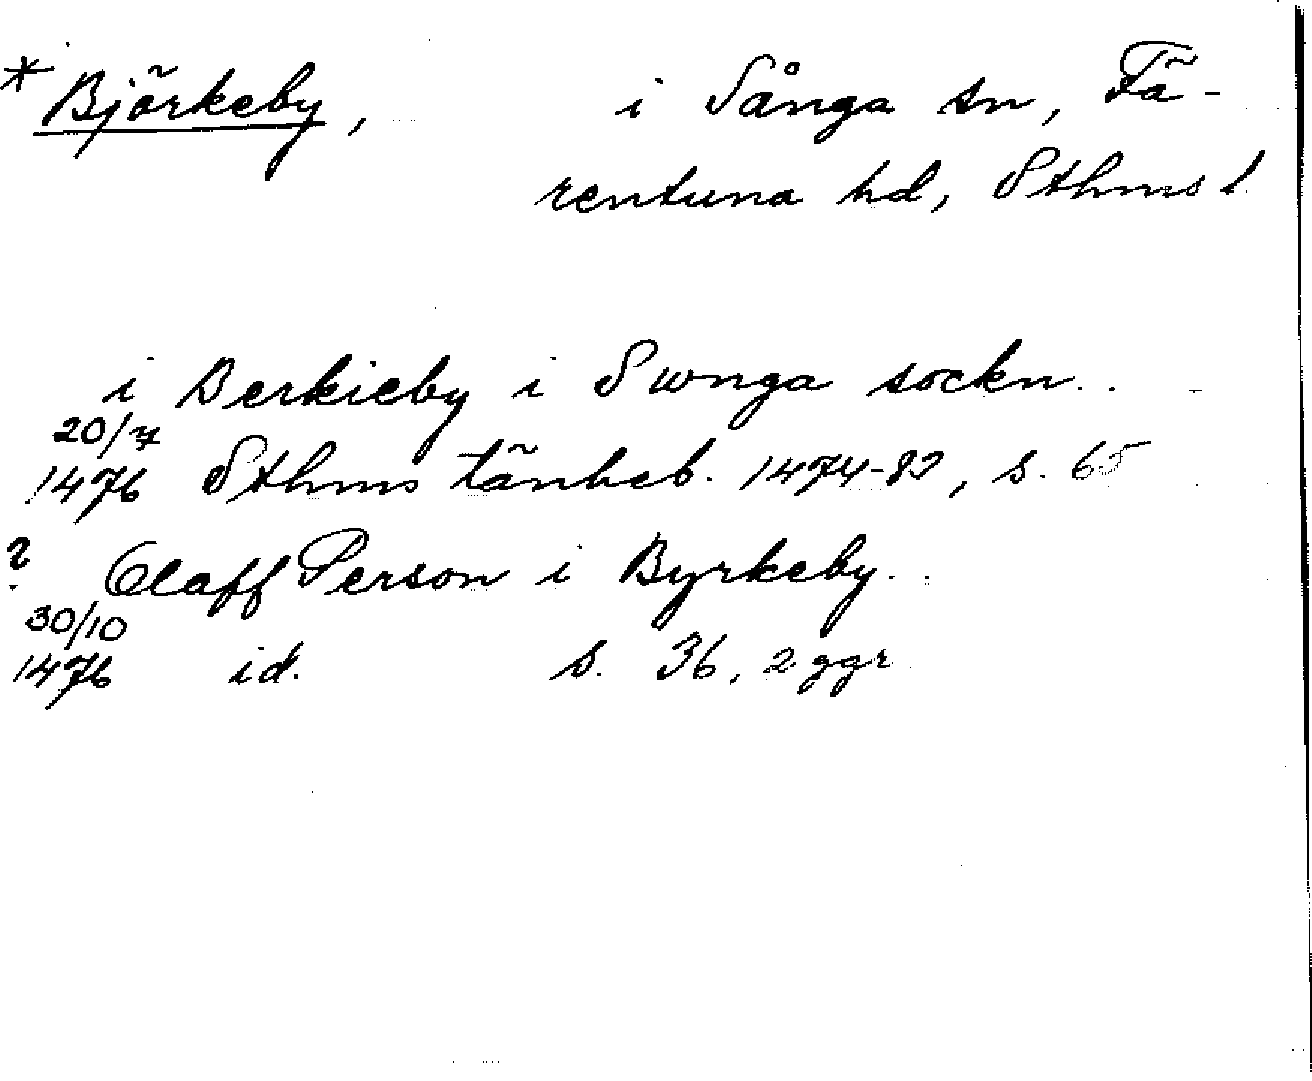 * Björkeby, i Sånga sn, Fä-
rentuna hd, Sthms l
i Berkieby i Swnga sockn..
20/7
1476 Sthms tänkeb. 1474-82, s. 65
? Olaff Person i Byrkeby..
30/10
1476 id. s. 36, 2 ggr